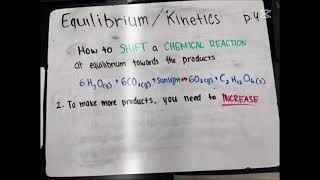 Equilibrium/Kinetics p.4
How to SHIFT a CHEMICAL REACTION
at equilibrium towards the products
6H₂O(g) + 6CO₂(g) + sunlight ⇌ 6O₂(g) + C₂H₁₂O₆(s)
2. To make more products, you need to INCREASE